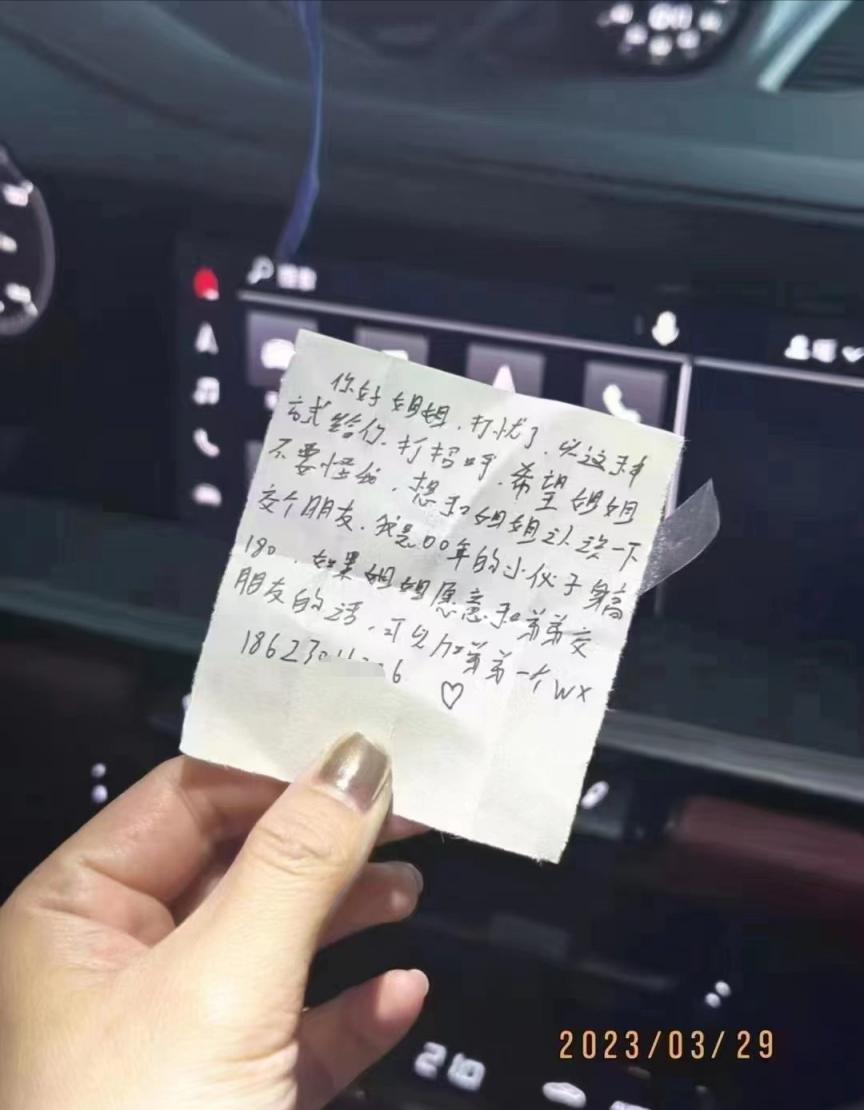 你好 姐姐，打扰了，以这种
方式给你打招呼，希望姐姐
不要怪我，想和姐姐认识一下
交个朋友，我是00年的小伙子身高
180，如果姐姐愿意和弟弟交
朋友的话，可以加弟弟一个WX
18623 6 ♡
2023/03/29